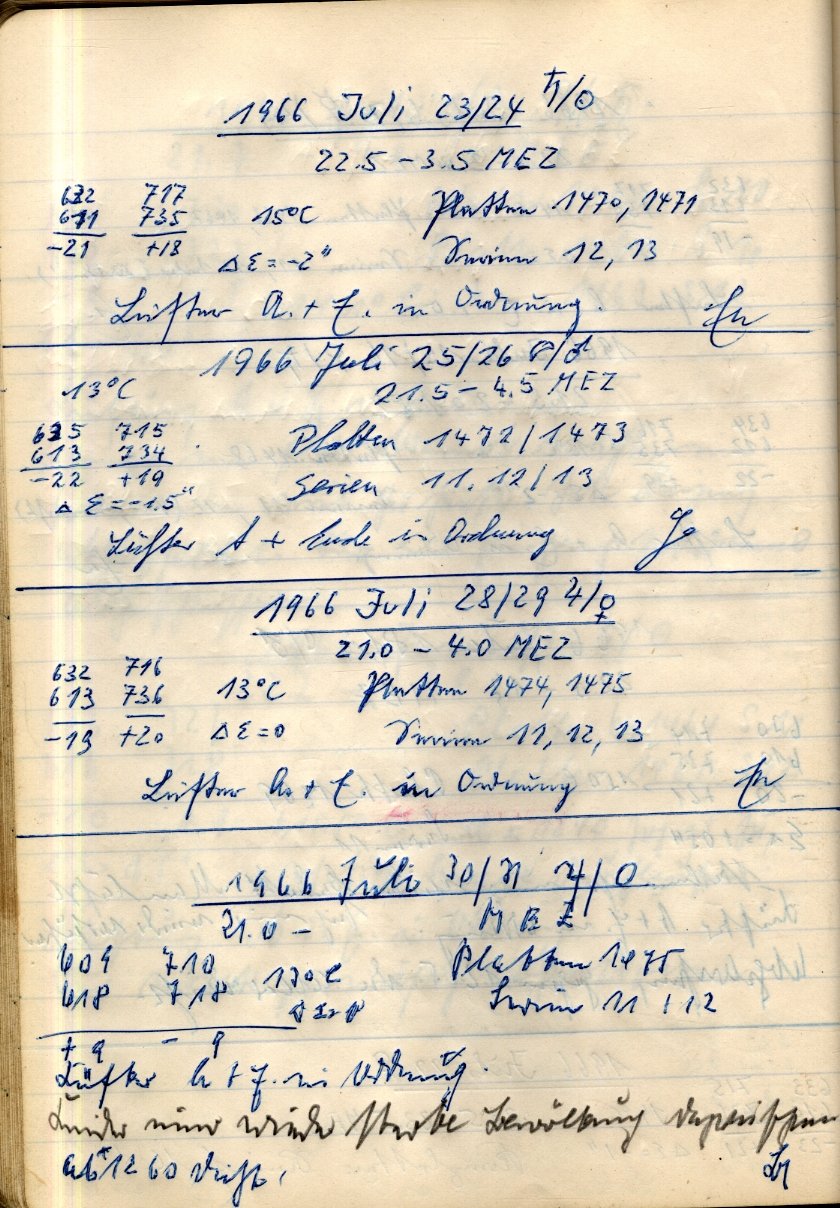 1966 Juli 23/24 ♄/☉
22.5 – 3.5 MEZ
632 717
611 735 15°C Platten 1470, 1471
-21 +18 Δ E = -2" Serien 12, 13
Lüfter A. + E. in Ordnung.
1966 Juli 25/26
13°C 21.5 – 4.5 MEZ
635 715 Platten 1472/1473
613 734
-22 +19 Serien 11, 12/13
Δ E = -1.5"
Lüfter A + Ende in Ordnung
1966 Juli 28/29 ♃/♀
21.0 – 4.0 MEZ
632 716
613 736 13°C Platten 1474, 1475
-19 +20 Δ E = 0 Serien 11, 12, 13
Lüfter A. + E. in Ordnung
1966 Juli 30/31
21.0 – MEZ
609 710 13°C Platten 1475
618 718 Serien 11 + 12
+9 - 9
Lüfter A + E. in Ordnung.
Leider wieder starke Bewölkung dazwischen